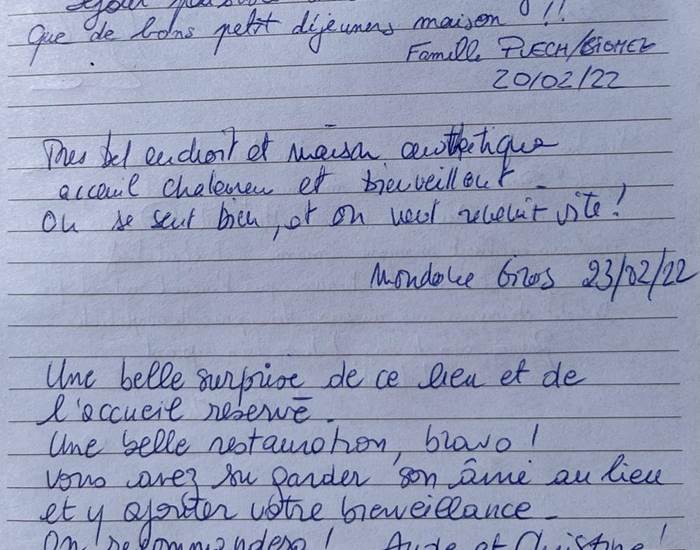 Que de bons petit déjeuners maison !!
Famille PUECH/
20/02/22
Tres bel endroit et maison authetique
acceuil chaleureu et bienveillant
On se sent bien, et on veut revenir vite !
Gros 23/02/22
Une belle surprise de ce lieu et de
l'accueil réservé.
Une belle restauration, bravo !
Vous avez su garder son âme au lieu
et y ajouter votre bienveillance.
On recommandera ! Aude et Christine !